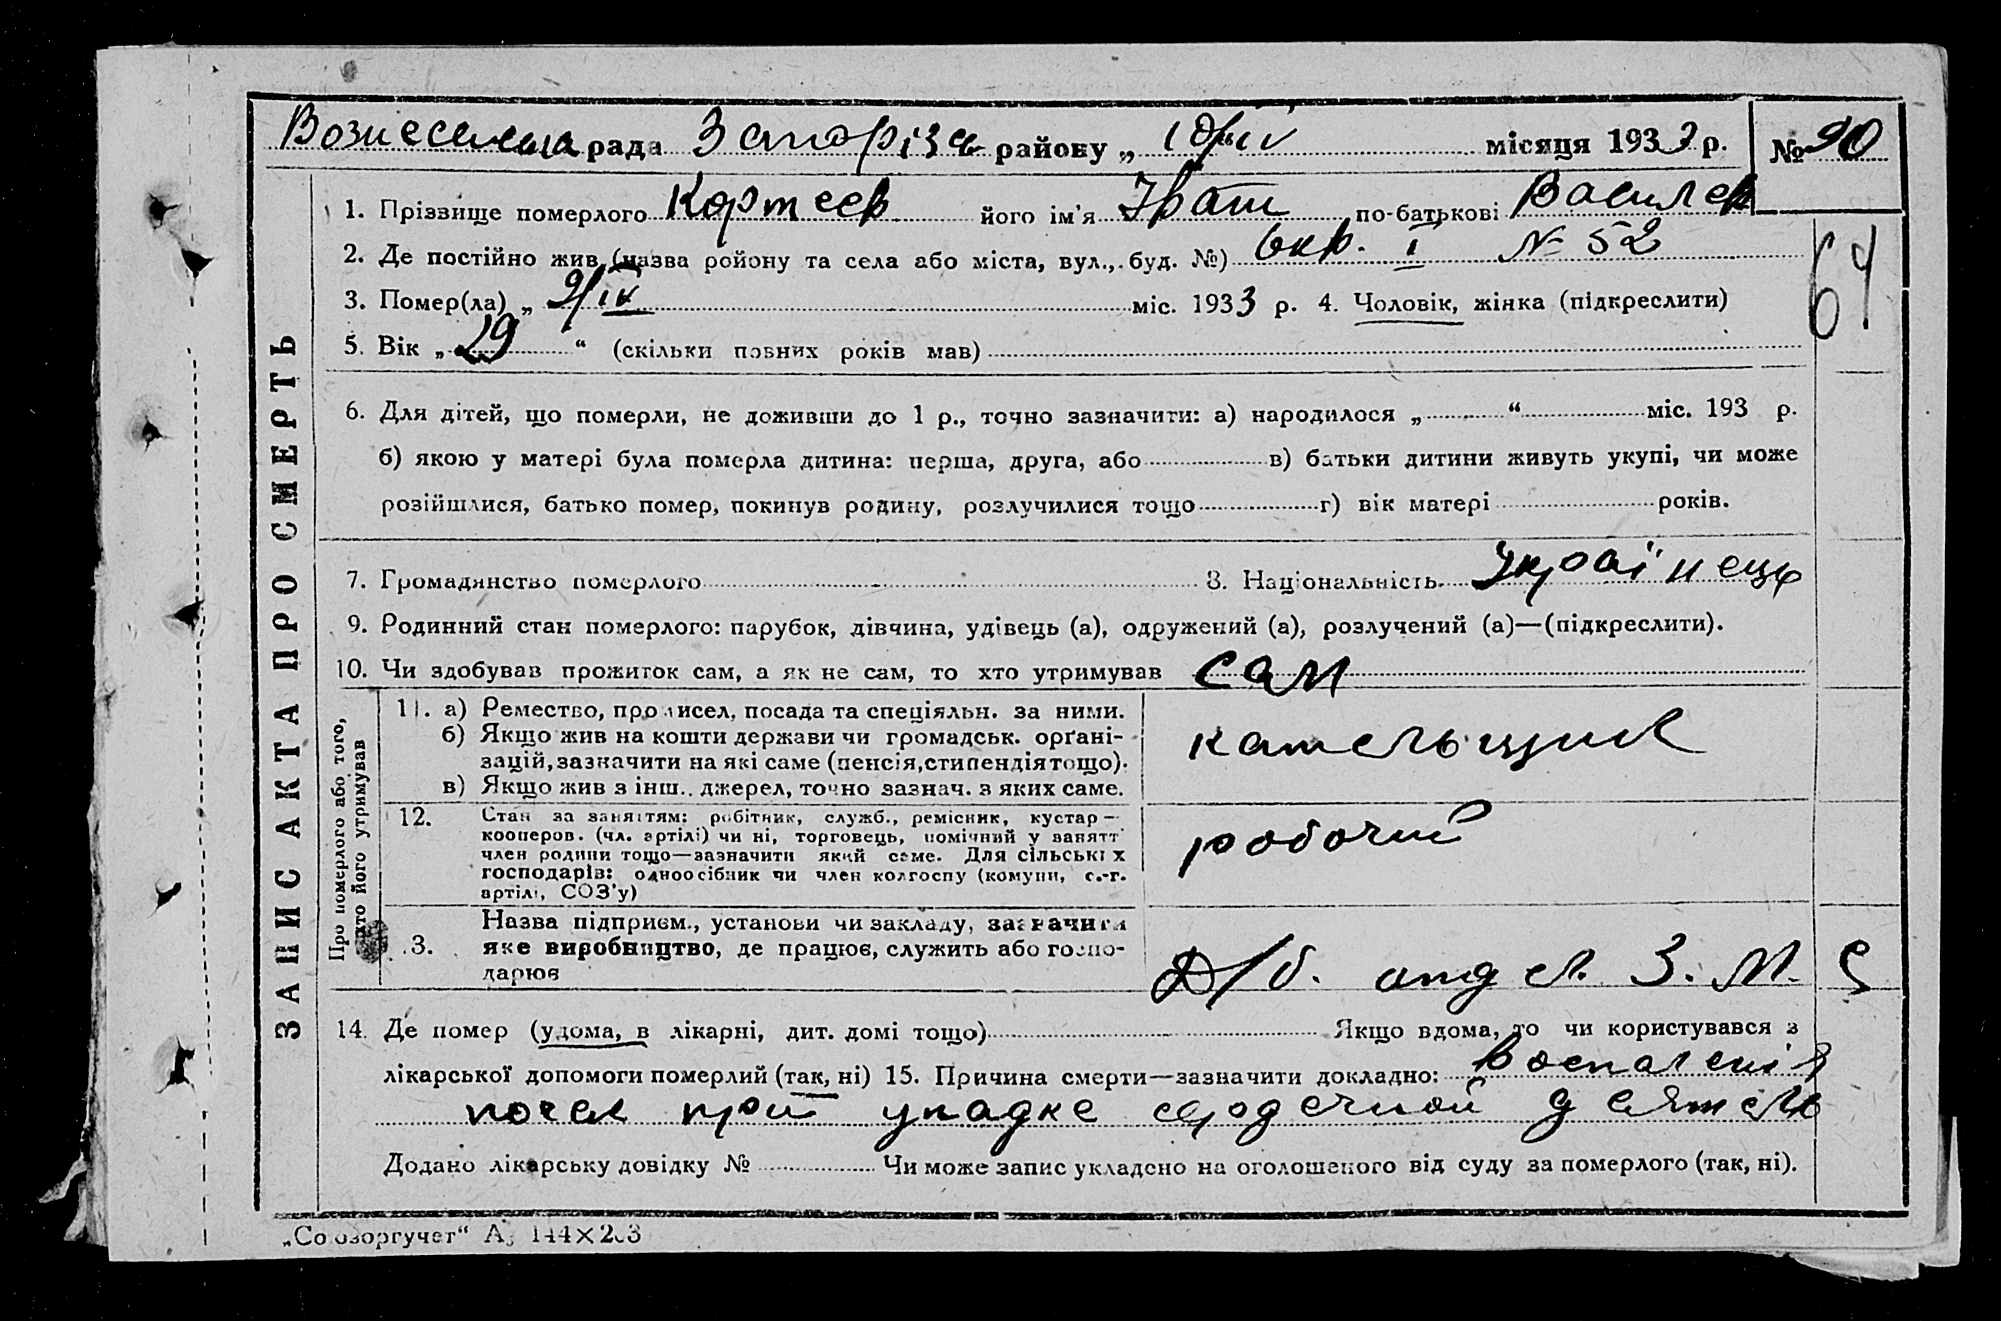 Вознесенська рада Запоріза району „ 10/IV місяця 1933 р. № 90
1. Прізвище померлого Кортеев його ім'я Ігнат по-батькові Василев
2. Де постійно жив (назва ройону та села або міста, вул., буд. №) Окр. I № 52
64
3. Помер(ла) „ 9/IV міс. 1933 р. 4. Чоловік, жінка (підкреслити)
5. Вік „ 29 “ (скільки повних років мав)
6. Для дітей, що померли, не доживши до 1 р., точно зазначити: а) народилося „ “ міс. 193 р.
б) якою у матері була померла дитина: перша, друга, або в) батьки дитини живуть укупі, чи може
розійшлися, батько помер, покинув родину, розлучилися тощо г) вік матері років.
7. Громадянство померлого 8. Національність Українець
9. Родинний стан померлого: парубок, дівчина, удівець (а), одружений (а), розлучений (а)—(підкреслити).
10. Чи здобував прожиток сам, а як не сам, то хто утримував сам
ЗАПИС АКТА ПРО СМЕРТЬ
Про померлого або того,
хто його утримував
11. а) Ремество, промисел, посада та спеціяльн. за ними.
б) Якщо жив на кошти держави чи громадськ. орґані-
зацій, зазначити на які саме (пенсія, стипендія тощо).
в) Якщо жив з інш.. джерел, точно зазнач. з яких саме.
котельщик
12. Стан за заняттям: робітник, служб., ремісник, кустар—
кооперов. (чл. артілі) чи ні, торговець, помічний у занятт
член родини тощо—зазначити який саме. Для сільських
господарів: одноосібник чи член колгоспу (комуни, с.-г.
артілі, СОЗ'у)
робочий
13. Назва підприєм., установи чи закладу, зазначити
яке виробництво, де працює, служить або госпо-
дарює
Д/б. отдел. З. М. 5
14. Де помер (удома, в лікарні, дит. домі тощо) Якщо вдома, то чи користувався з
лікарської допомоги померлий (так, ні) 15. Причина смерти—зазначити докладно: воспаления
почек при упадке сердечной деятель
Додано лікарську довідку № Чи може запис укладено на оголошеного від суду за померлого (так, ні).
„Союзоргучет“ А5 144×203